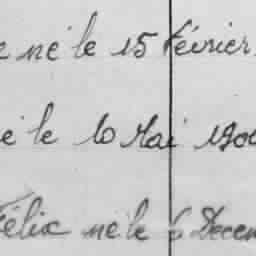 né le 15 Février
né le 10 Mai 190
Félix né le 6 Decem